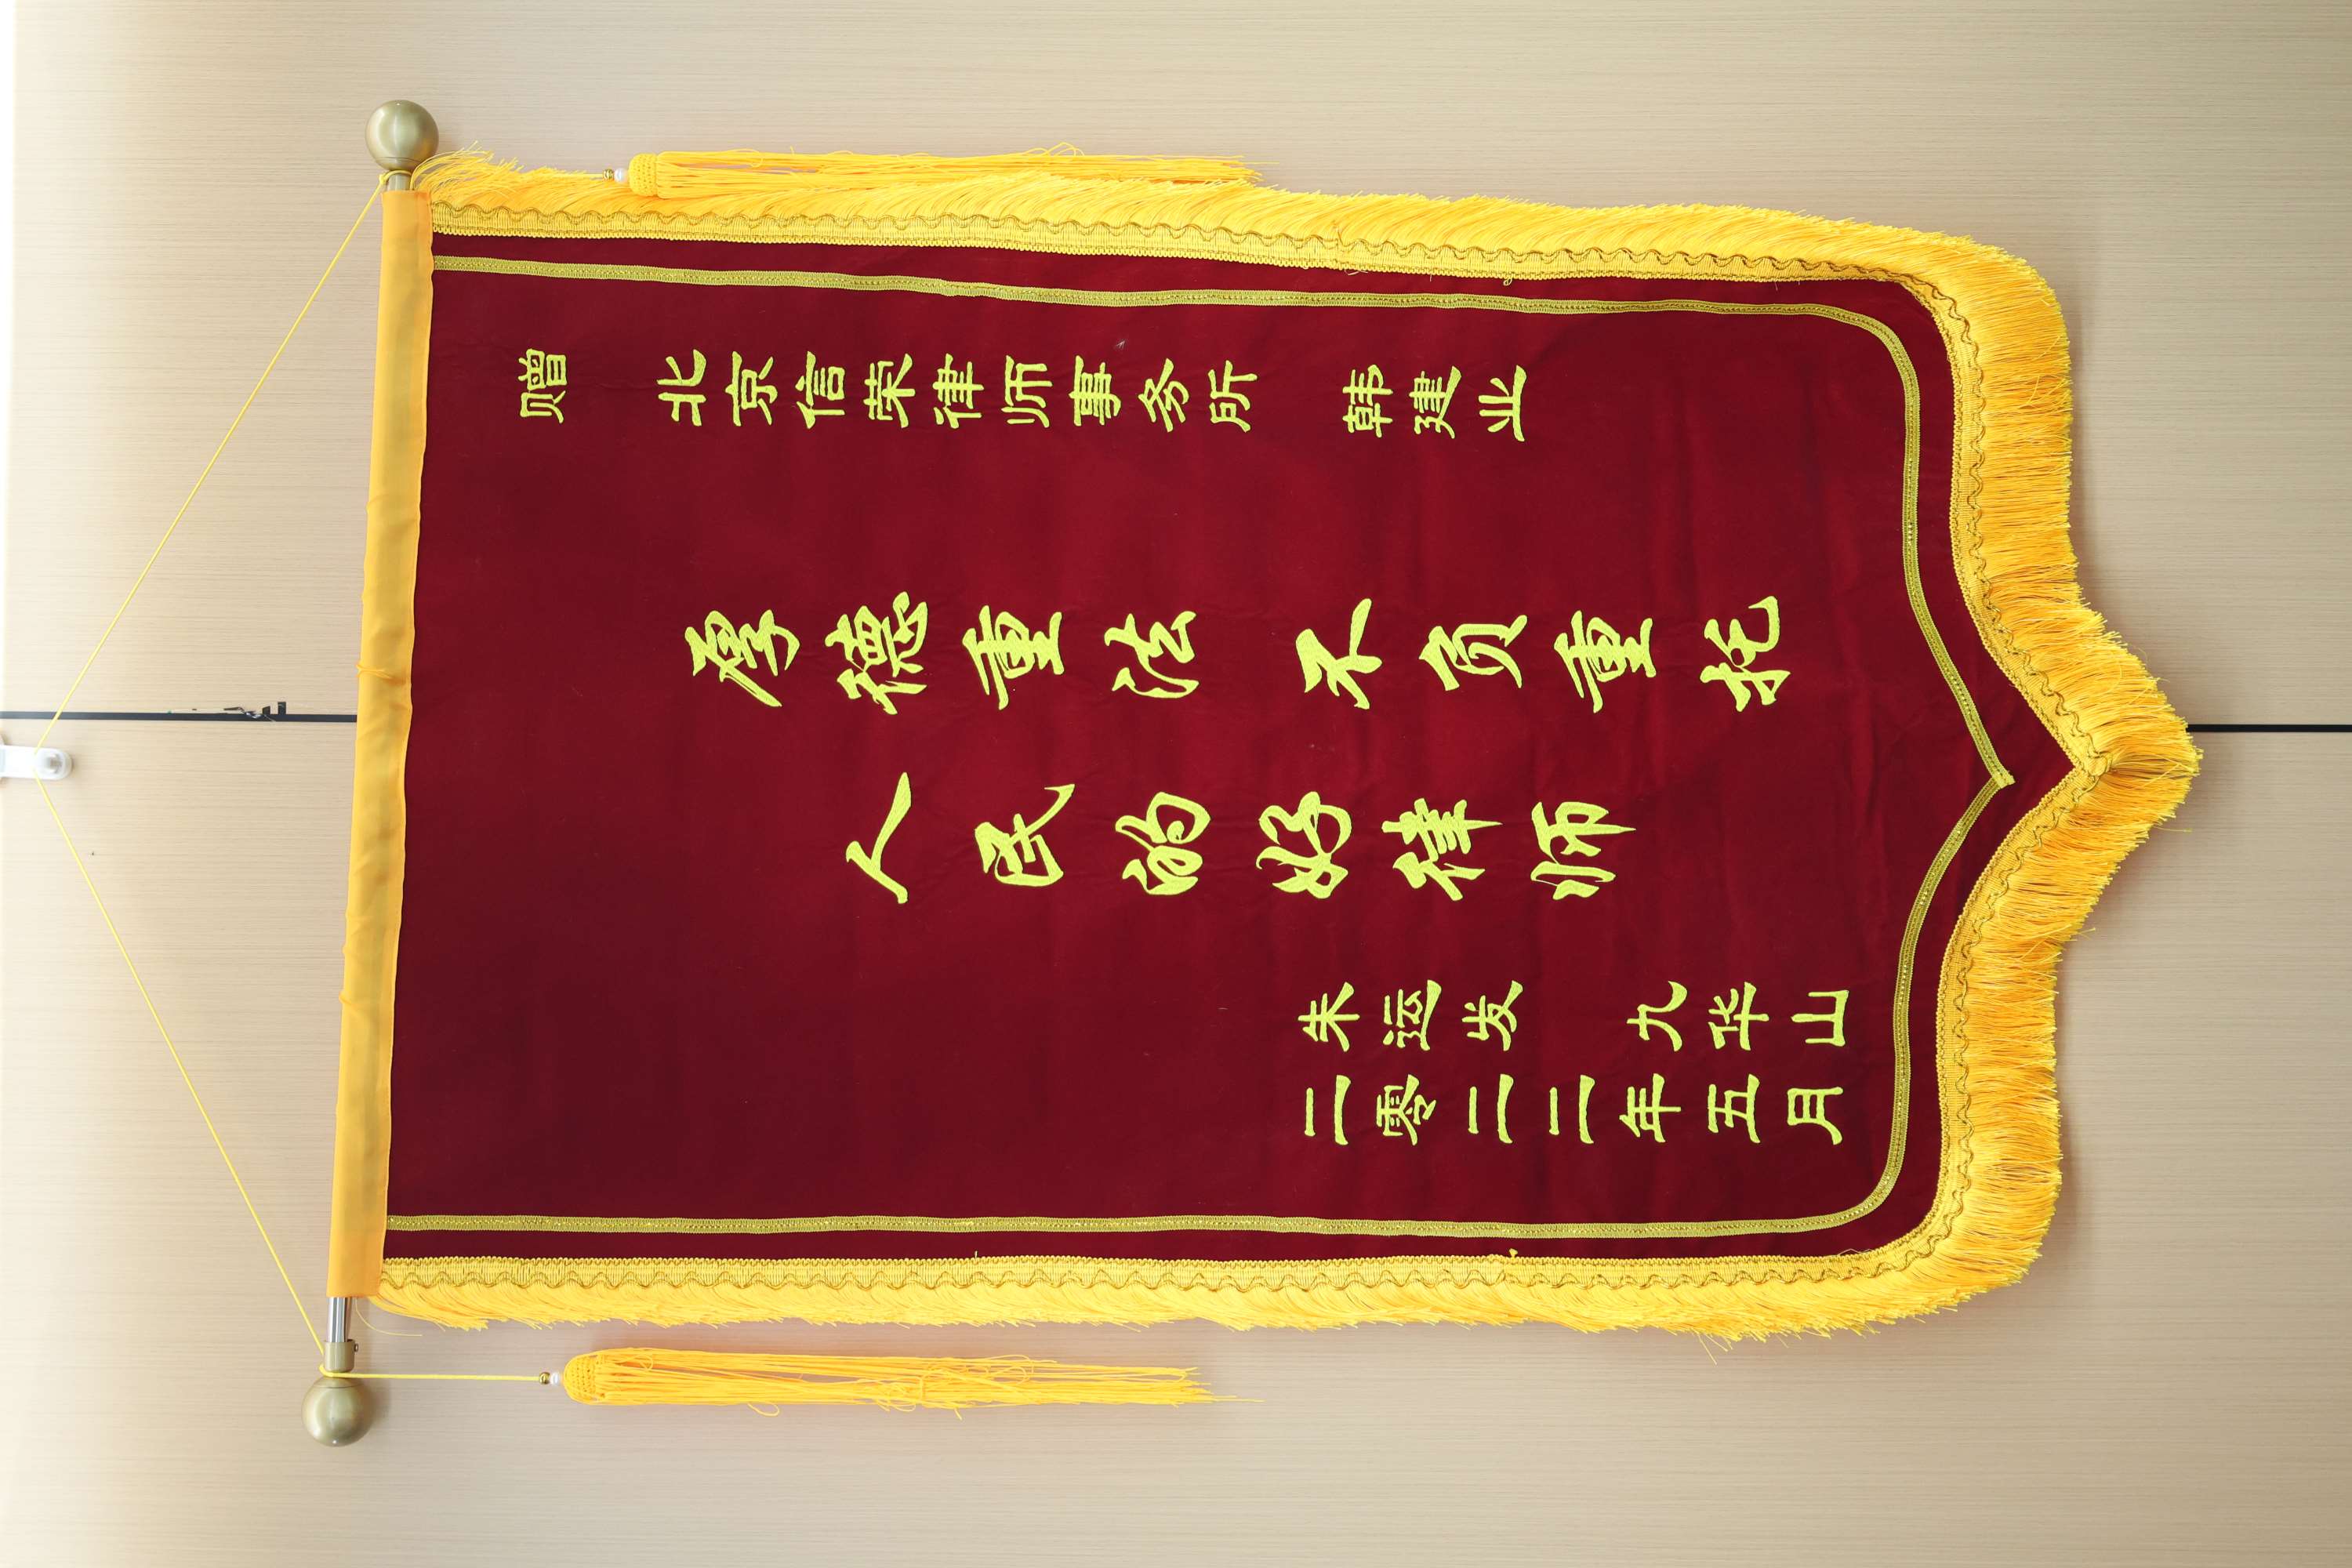 赠 北京信荣律师事务所 韩建业
厚德重法 不负重托
人民的好律师
朱运发 九华山
二零二二年五月